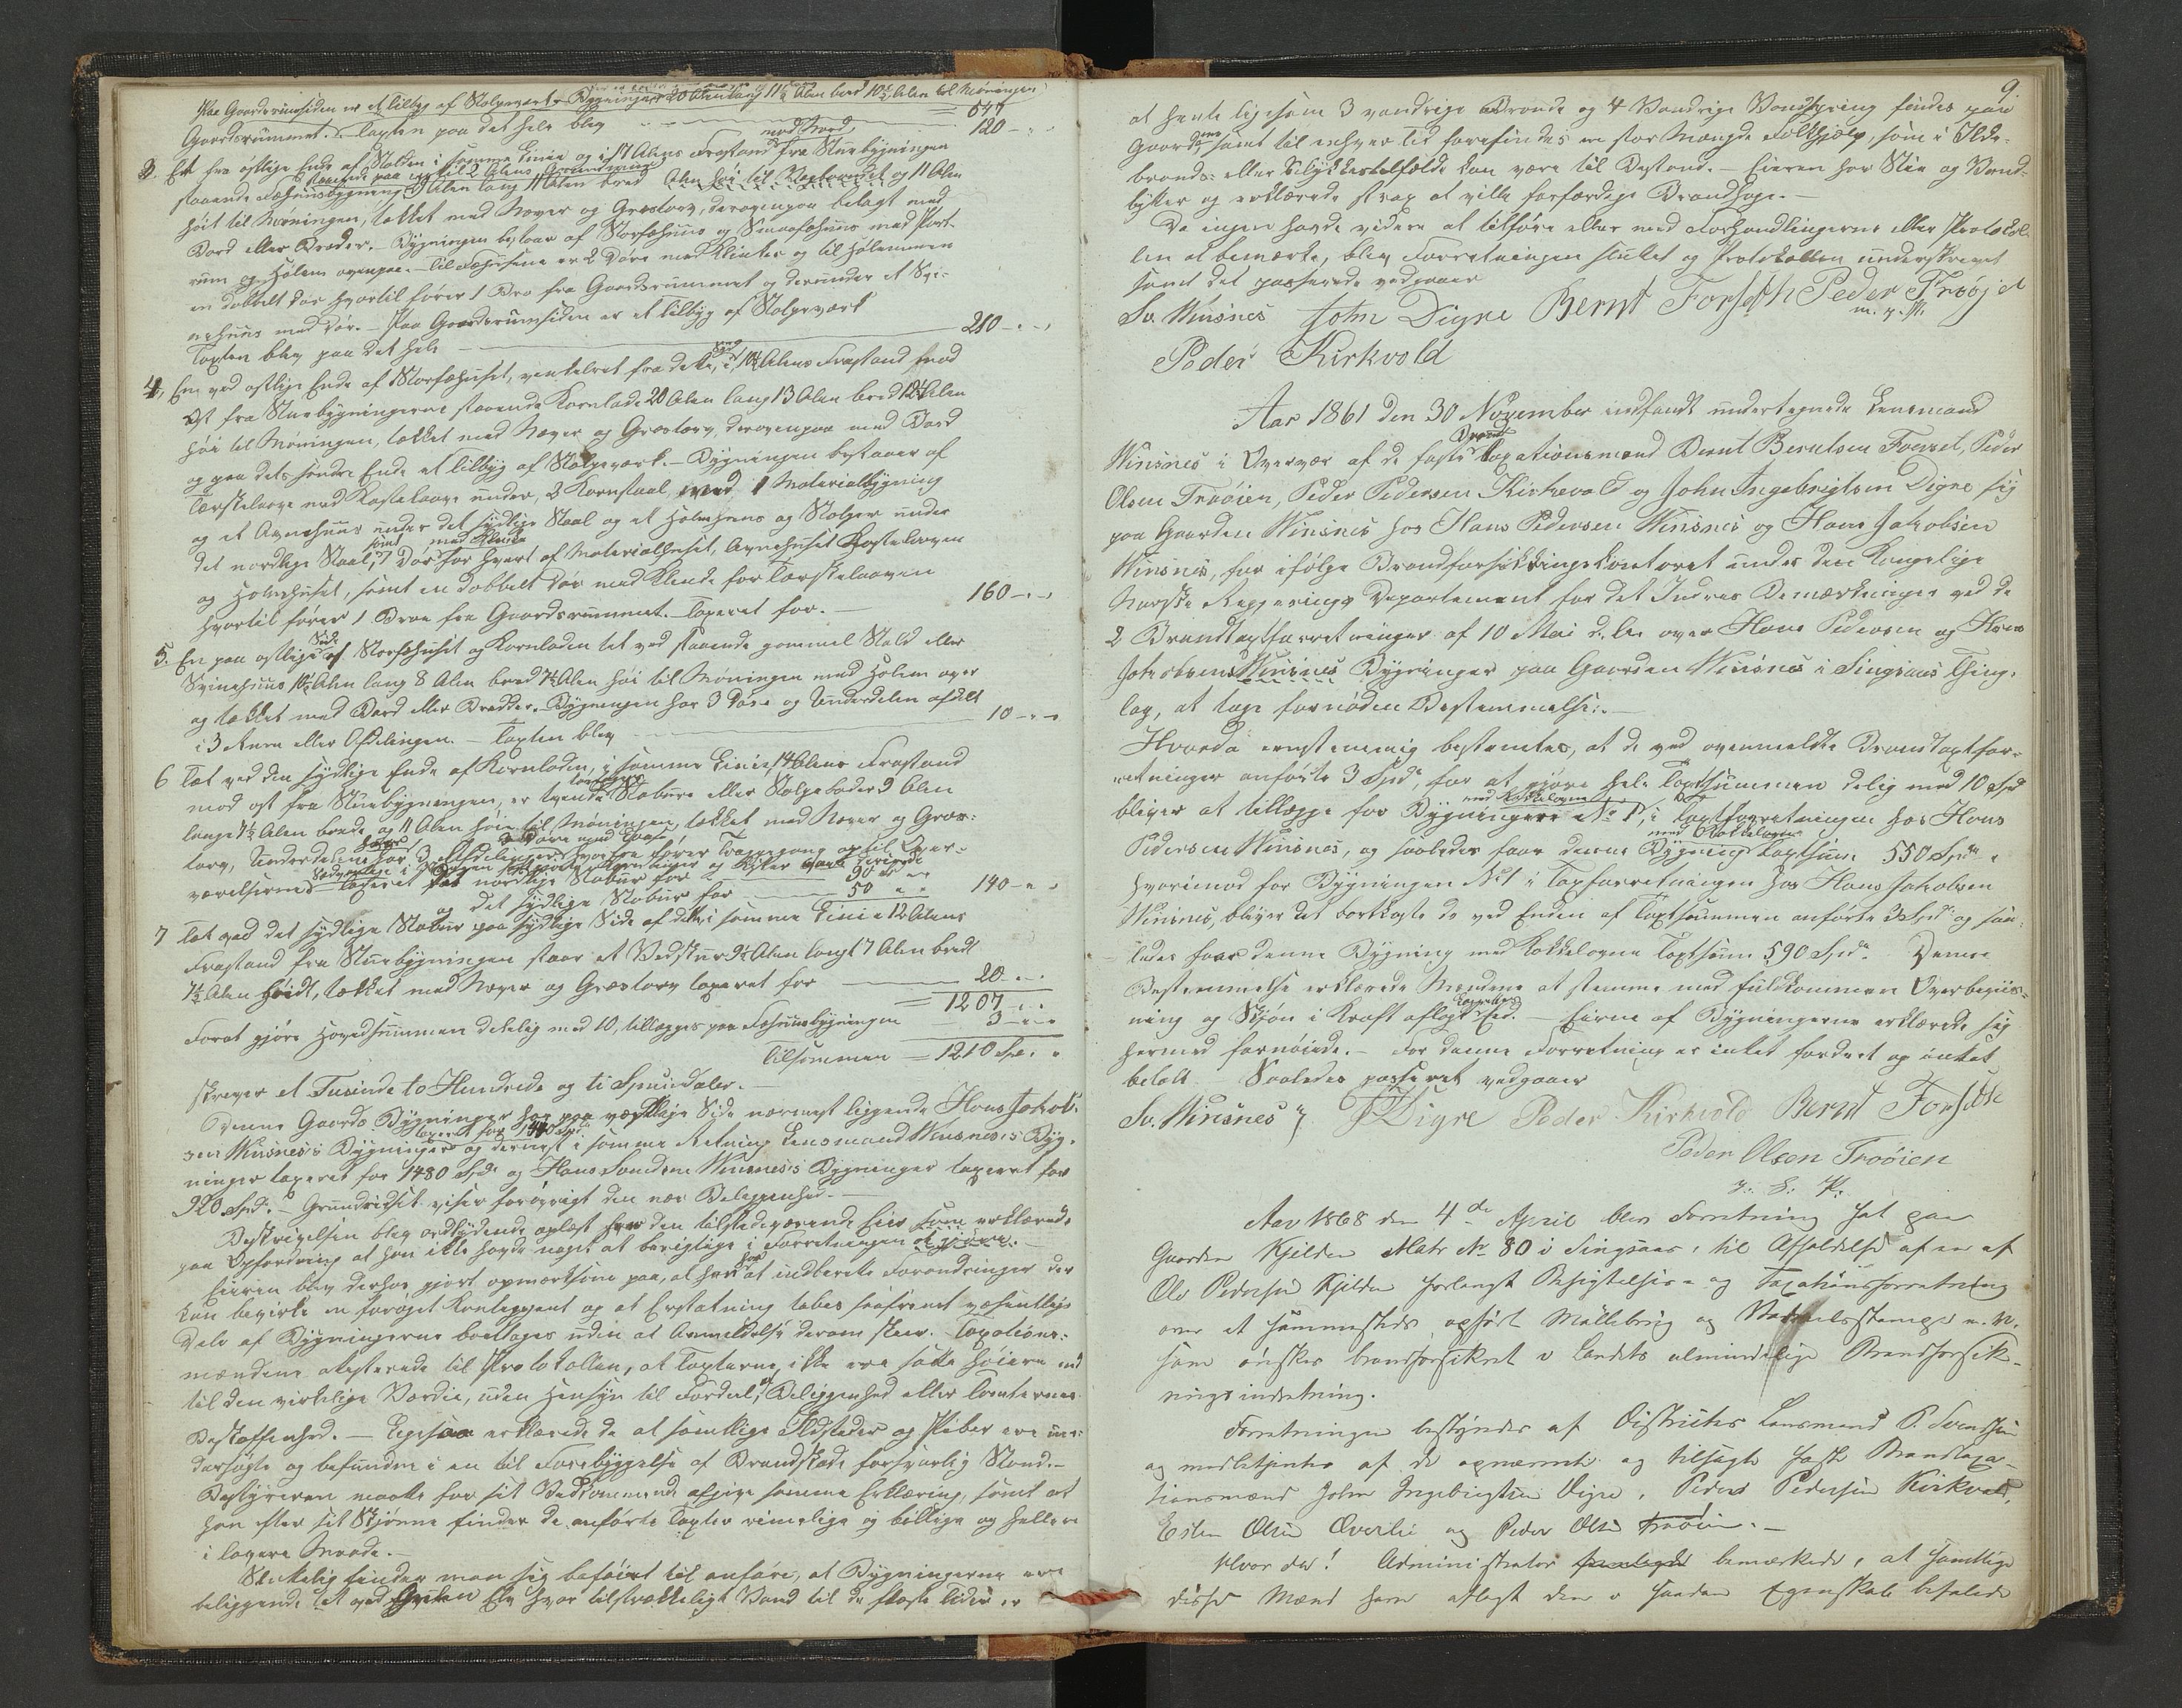 Paa Gaardsrumsiden er et tilbyg af Stolpeværk Bygningen 20 Alen lang 11½ Alen bred 10½ Alen til Møningen
Gaardsrummet. Taxten paa det hele blev 547
120
3. En fra østlige Ende af Stalden i samme Linie og i 17 Alens Frastand mod Nord fra Stuebygningen
staaende Fæhuusbygning Alen lang 11 Alen bred Alen høi til og 11 Alen
høit til Møningen, tækket med Næver og Græstorv, derovenpaa belagt med
Bord eller Bræder. Bygningen bestaar af Storfæhuus og Smaafæhuus med
rum og Hølem ovenpaa. Til Fæhusene er 2 Døre med Klinker og til Hølemmen
en dobbelt Dør hvortil fører 1 Bro fra Gaardsrummet og derunder et Svi-
nehuus med Dør. Paa Gaardsrumsiden er et tilbyg af Stolpeværk
Taxten blev paa det hele 210
4, En ved østlige Ende af Storfæhuset, ventelret fra dette, i 10½ Alens Frastand mod
Øst fra Stuebygningerne staaende Kornlade 20 Alen lang 13 Alen bred 12½ Alen
høi til Møningen, tækket med Næver og Græstorv, derovenpaa med Bord
og paa dets søndre Ende et tilbyg af Stolpeværk. Bygningen bestaaer af
Tærskelaave med Kastelaave under, 2 Kornstaal, med 1 Materialbygning
og et Avnehuus under det sydlige Staal og et Halmhuus og Stolper under
det nordlige Staal, samt 1 Dør med Klinke for hvert af Materialhuset, Avnehuset Kastelaaven
og Halmhuset, samt en dobbelt Dør med Klinke for Tærskelaaven
hvortil fører 1 Broe fra Gaardsrummet. Taxeret for. 160
5. En paa østlige Side af Storfæhuset og Kornladen tet ved staaende gammel Stald eller
Svinehuus 10½ Alen lang 8 Alen bred 7½ Alen høi til Møningen med Hølem over
og tækket med Bord eller Brædder. Bygningen har 3 Døre og Underdelen afdelt
i 3 Rum eller Afdelinger. Taxten blev 10
6 Tæt ved den sydlige Ende af Kornladen, i samme Linie, 14 Alens Frastand
mod øst fra Stuebygningen, er tvende Stabure eller Stolpeboder 9 Alen
lange 7½ Alen brede og 11 Alen høie til Møningen, tækket med Næver og Græs-
torv, Underdelene har 3 Afdelinger hvorfra fører Trappegang op til Over-
værelserne Taxeret det nordlige Stabur for 90
og det sydlige Stabur for 50 140
7 Tæt ved det sydlige Stabur paa sydlige Side af dette, i samme Linie 12 Alens
Frastand fra Stuebygningen staar et Vedskuur 9½ Alen langt 7 Alen bredt
7½ Alen høidt, tækket med Næver og Græstorv taxeret for 20
= 1207
Forat gjøre Hovedsummen delelig med 10, tillægges paa Fæhuusbygningen 3
Tilsammen = 1210 Spd.
skriver et Tusinde to Hundrede og ti Speciedaler.
Denne Gaards Bygninger har paa vestlige Side nærmest liggende Hans Jakob-
sen Winsnes's Bygninger taxeret for og dernest i samme Retning Lensmand Winsnes's Byg-
ninger taxeret for 1480 Spd. og Hans Winsnes's Bygninger taxeret for
920 Spd. Grundridset viser forøvrigt den nær Beliggenhed.
Beskrivelsen blev ordlydende oplæst for den tilstedeværende Eier som erklærede
paa Opfordring at han ikke havde noget at berigtige i Forretningen at gjøre.
Eieren blev derhos gjort opmærksom paa, at han har at indberette Forandringer der
kan bevirke en forøget Kontingent og at Erstatning tabes saafremt væsentlige
Dele af Bygningerne borttages uden at Anmeldelse derom skeer. Taxations-
mændene attesterede til Protokollen, at Taxterne, ikke ere satte høiere end
til den virkelige Værdie, uden Hensyn til Fordeel, af Beliggenhed eller Tomternes
Beskaffenhed. Ligesaa erklærede de at samtlige Ildsteder og Piber ere un-
dersøgte og befundne i en til Forebyggelse af Brandskade forsvarlig Stand.
Bestyreren maatte for sit Vedkommende afgive samme Erklæring, samt at
han efter sit Skjønne finder de anførte Taxter rimelige og billige og hellere
i lavere Maade.
Slutelig finder man sig beføiet til anføre, at Bygningerne ere
beliggende tet ved Elv hvor tilstrækkeligt Vand til de fleste Tider er
9.
at hente ligesom 3 vandrige Brønde og 4 Vandrige Vandspring findes paa
Gaarden samt til enhver tid forefindes en stor Mængde Folkhjelp, som i Ilde-
brands- eller Ulykkestilfælde kan være til Bestand. Eieren har Stie og Vand-
bøtter og erklærede strax at ville forfærdige Brandhage.
Da ingen havde videre at tilføre eller med Forhandlingerne eller Protokol-
len at bemærke, blev Forretningen sluttet og Protokollen underskrevet
samt det passerede vedgaaes
Sv. Winsnes John Digre Bernt Forseth Peder Trøøjet
m. p. P.
Peder Kirkvold
Aar 1861 den 30 November indfandt undertegnede Lensmand
Winsnes i Overvær af de faste Brand taxationsmænd Bernt Berntsen Forset, Peder
Olsen Trøøien, Peder Pedersen Kirkvold og John Ingebrigtsen Digre sig
paa Gaarden Winsnes hos Hans Pedersen Winsnes og Hans Jakobsen
Winsnes, for ifølge Brandforsikkringskontoret under den Kongelige
Norske Regjerings Departement for det Indres Bemærkninger ved de
2 Brandtaxtforretninger af 10 Mai d. A. over Hans Pedersen og Hans
Jakobsens Winsnes Bygninger paa Gaarden Winsnes i Singsaas Thing-
lag, at tage fornøden Bestemmelse.
Hvorda eenstemmig bestemtes, at de ved ovenmeldte Brandtaxtfor-
retninger anførte 3 Spd, for at gjøre hele Taxtsummen delig med 10 Spd
bliver at tillægge for Bygningen med Kakkelovne No 1, i Taxtforretningen hos Hans
Pedersen Winsnes, og saaledes faar denne Bygning med Kakkelovne Taxtsum 550 Spd
hvorimod for Bygningen No 1 i Taxforretningen hos Hans Jakobsen
Winsnes, bliver det bortkaste de ved Enden af Taxtsummen anførte 3 Spd og saa-
ledes faar denne Bygning med Kakkelovne Taxtsum 590 Spd. Denne
Bestemmelse erklærede Mændene at stemme med fuldkommen Overbeviis-
ning og Skjøn i Kraft aflagt Ed. Eierne af Bygningerne erklærede sig
hermed fornøiede. For denne Forretning er intet fordret og intet
betalt. Saaledes passeret vedgaaes
Sv. Winsnes J Digre Peder Kirkvold Bernt Forsette
Peder Olsen Trøøien
Aar 1868 den 4de April blev Forretning sat paa
Gaarden Kjelden Matr No 80 i Singsaas, til Afholdelse af en af
Ole Pedersen Kjelden forlangt Besigtelses- og Taxationsforretning
over et sammesteds opført Møllebrug og m. v.
som ønskes brandforsikret i Landets almindelige Brandforsik-
ringsindretning.
Forretningen bestyredes af Districtets Lensmand P. Svendsen
og medbetjentes af de opnævnte og tilsagte faste Brandtaxa-
tionsmænd John Ingebrigtsen Digre, Peder Pedersen Kirkvold,
Esten Olsen Øverlie og Peder Olsen Trøøien.
Hvor da! Administrator fremlagde bemærkede, at samtlige
disse Mænd have aflagt den i saadan Egenskab befalede